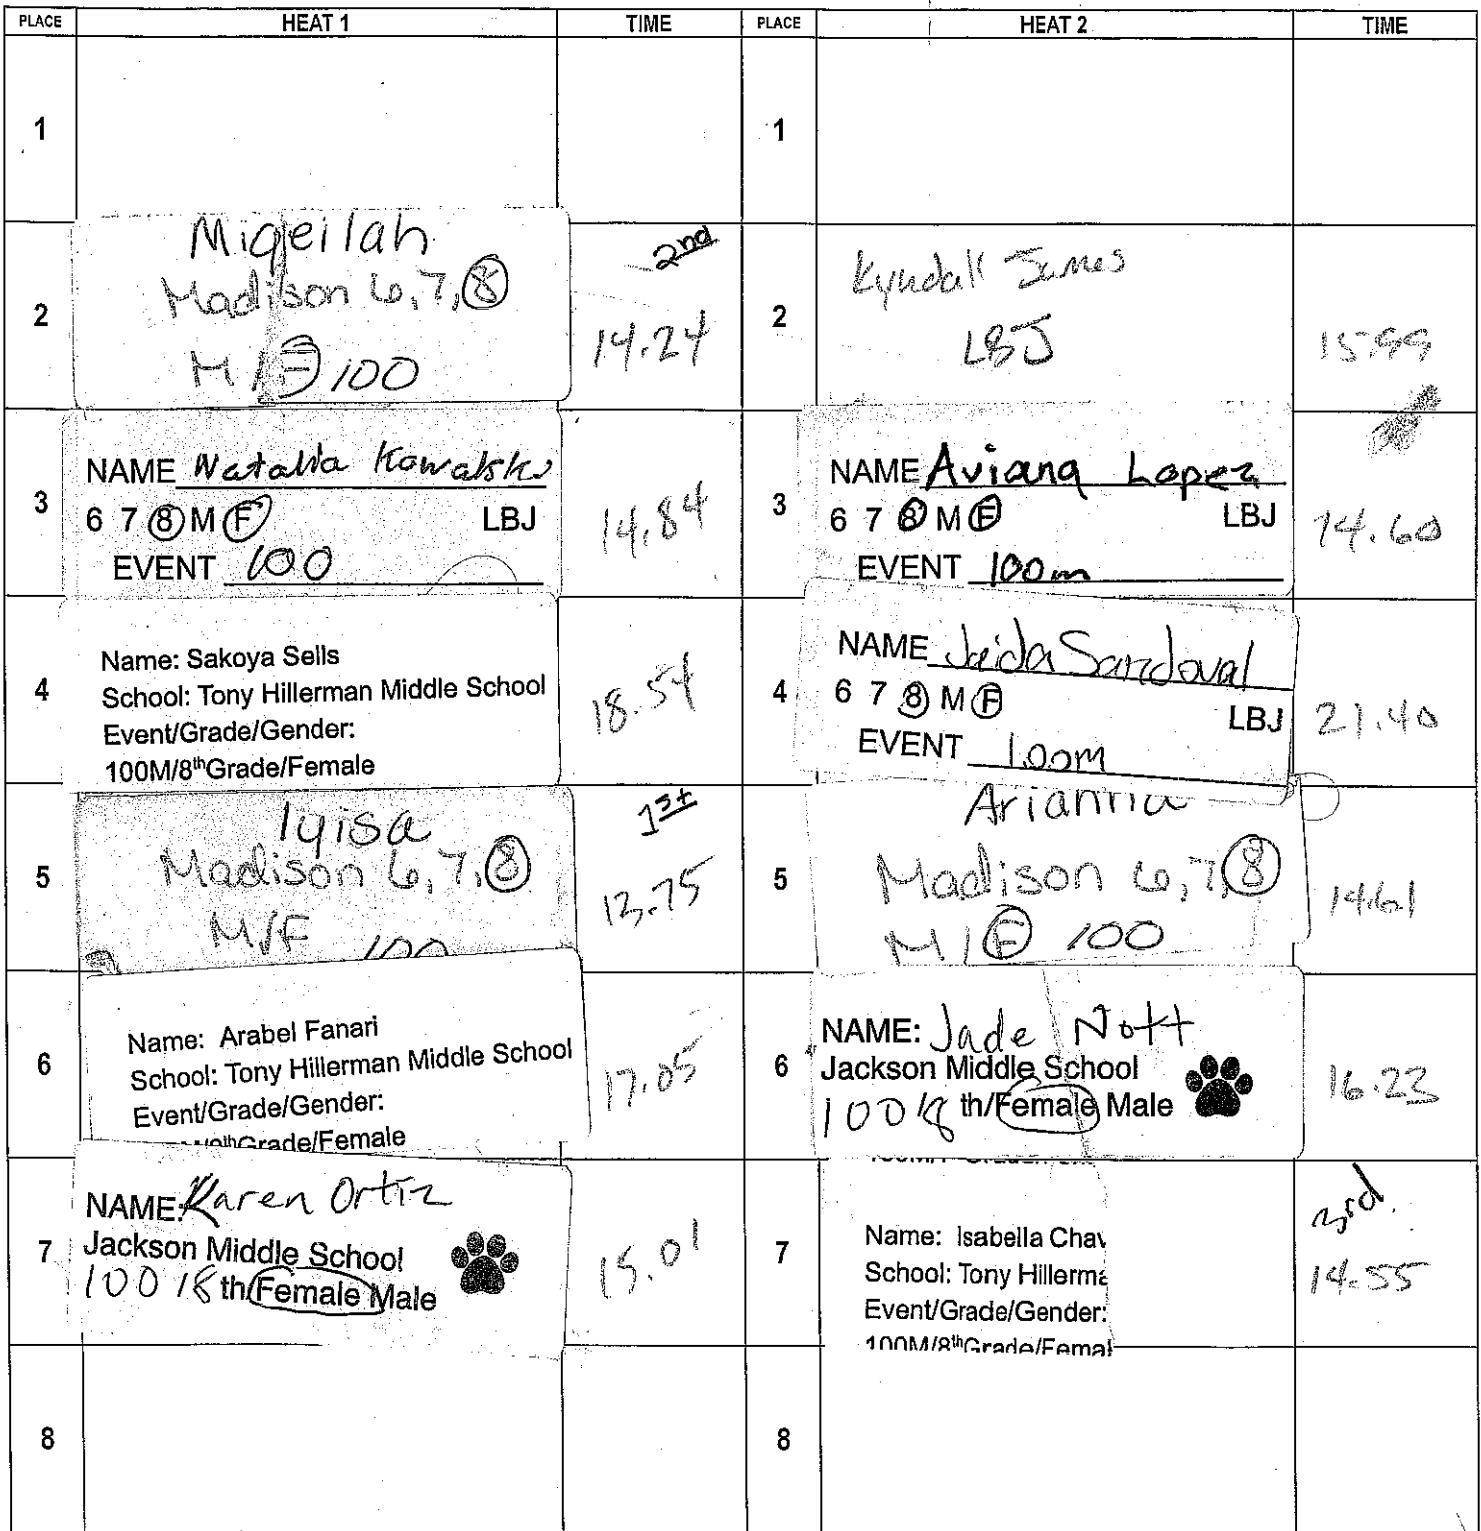 PLACE HEAT 1 TIME PLACE HEAT 2 TIME
1 1
Miqeilah
Madison 6,7,8
M/F 100
2
2nd
14.24
2
Kyndall James
LBJ
15.99
3
NAME Natalia Kowalski
6 7 8 M F LBJ
EVENT 100
14.84
3
NAME Aviana Lopez
6 7 8 M F LBJ
EVENT 100m
14.60
4
Name: Sakoya Sells
School: Tony Hillerman Middle School
Event/Grade/Gender:
100M/8thGrade/Female
18.54
4
NAME Jaida Sandoval
6 7 8 M F LBJ
EVENT 100m
21.40
5
Iyisa
Madison 6,7,8
M/F 100
1st
13.75
5
Arianna
Madison 6,7,8
M/F 100
14.61
6
Name: Arabel Fanari
School: Tony Hillerman Middle School
Event/Grade/Gender:
Grade/Female
17.05
6
NAME: Jade Nott
Jackson Middle School
100 18 th/Female Male
16.23
7
NAME: Karen Ortiz
Jackson Middle School
100 18 th/Female Male
15.01
7
Name: Isabella Chav
School: Tony Hillerma
Event/Grade/Gender:
100M/8thGrade/Femal
3rd
14.55
8 8